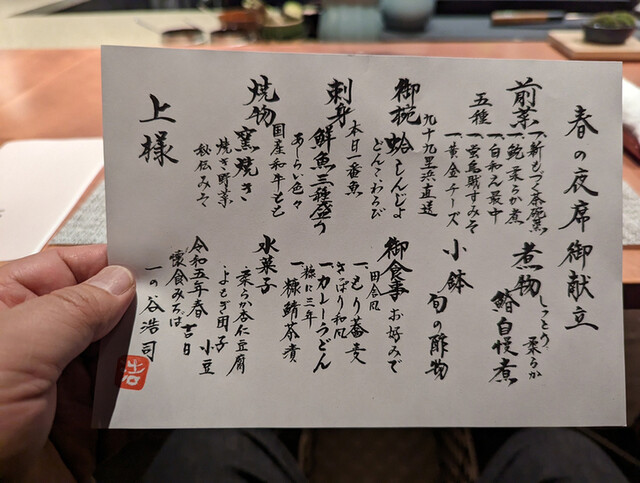 春の夜席御献立
前菜
五種
一、新もづく茶碗蒸
一、鮑柔らか煮
一、白和え最中
一、蛍烏賊すみそ
一、黄金チーズ
煮物
しっとり、柔らか
鰆自慢煮
御椀
九十九里浜直送
蛤しんじよ
どんこわらび
小鉢
旬の酢物
刺身
本日一番魚
鮮魚三種盛り
あしらい色々
御食事
お好みで
田舎風
一、もり蕎麦
さっぱり和風
一、カレーうどん
糠に三年
一、糠鯖茶漬
焼物
国産和牛もも
窯焼き
焼き野菜
秘伝みそ
水菓子
柔らか杏仁豆腐
よもぎ団子
小豆
上様
令和五年春
吉日
懐食みちば
一の谷浩司
浩